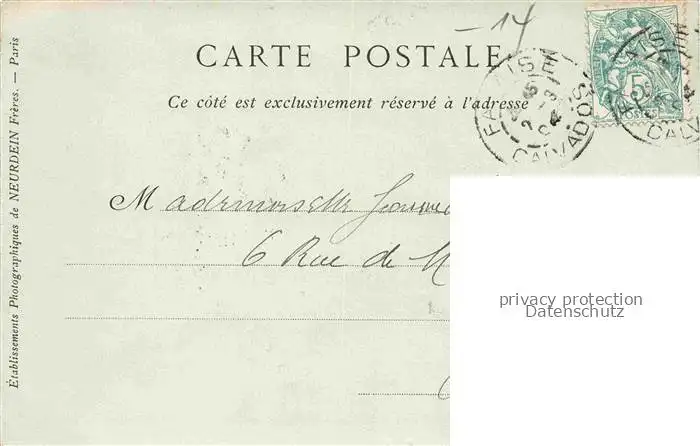 -14
CARTE POSTALE
Ce côté est exclusivement réservé à l'adresse
FALAISE
CALVADOS
5
POSTES
Mademoiselle
6 Rue de
privacy protection
Datenschutz
Établissements Photographiques de NEURDEIN Frères. — Paris